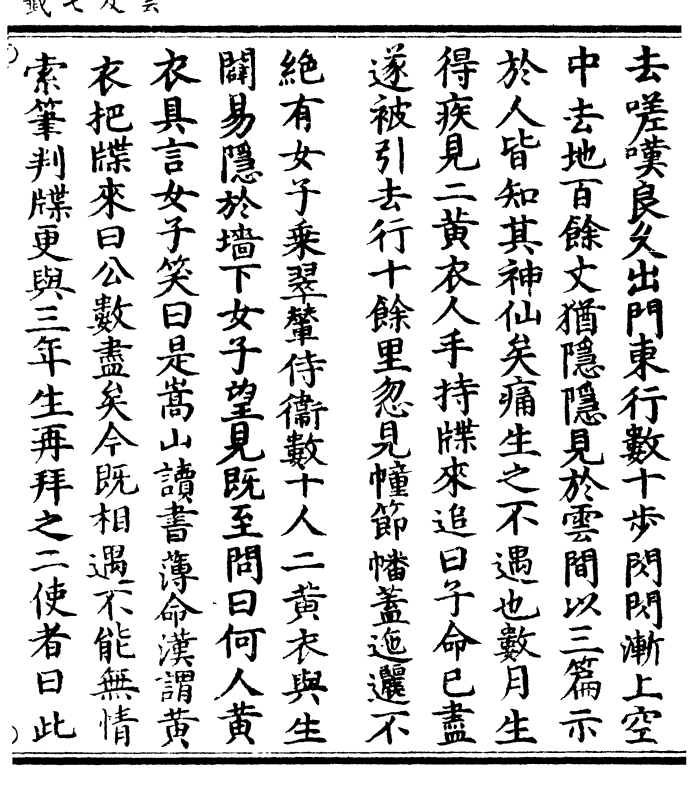 去嗟嘆良久出門東行數十步閃閃漸上空
中去地百餘丈猶隱隱見於雲間以三篇示
於人皆知其神仙矣痛生之不遇也數月生
得疾見二黄衣人手持牒來追曰子命已盡
遂被引去行十餘里忽見幢節幡蓋迤邐不
絶有女子乗翠輦侍衞數十人二黄衣與生
闢易隱於墻下女子望見既至問曰何人黄
衣具言女子笑曰是嵩山讀書薄命漢謂黄
衣把牒來曰公數盡矣今既相遇不能無情
索筆判牒更與三年生再拜之二使者曰此